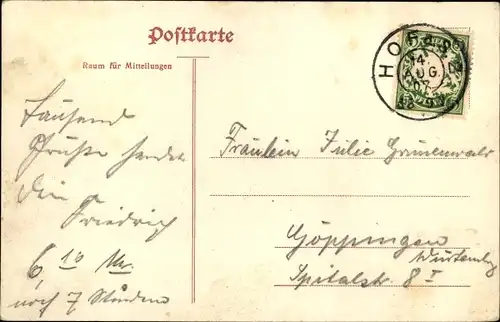 Postkarte
Raum für Mitteilungen
HOF
14
AUG.
07
Tausend
Grüße sendet
Dein
Friedrich
6,10 Uhr
noch 7 Stunden
Fräulein Julie Grünenwald
Göppingen
Württemberg
Spitalstr. 8 I